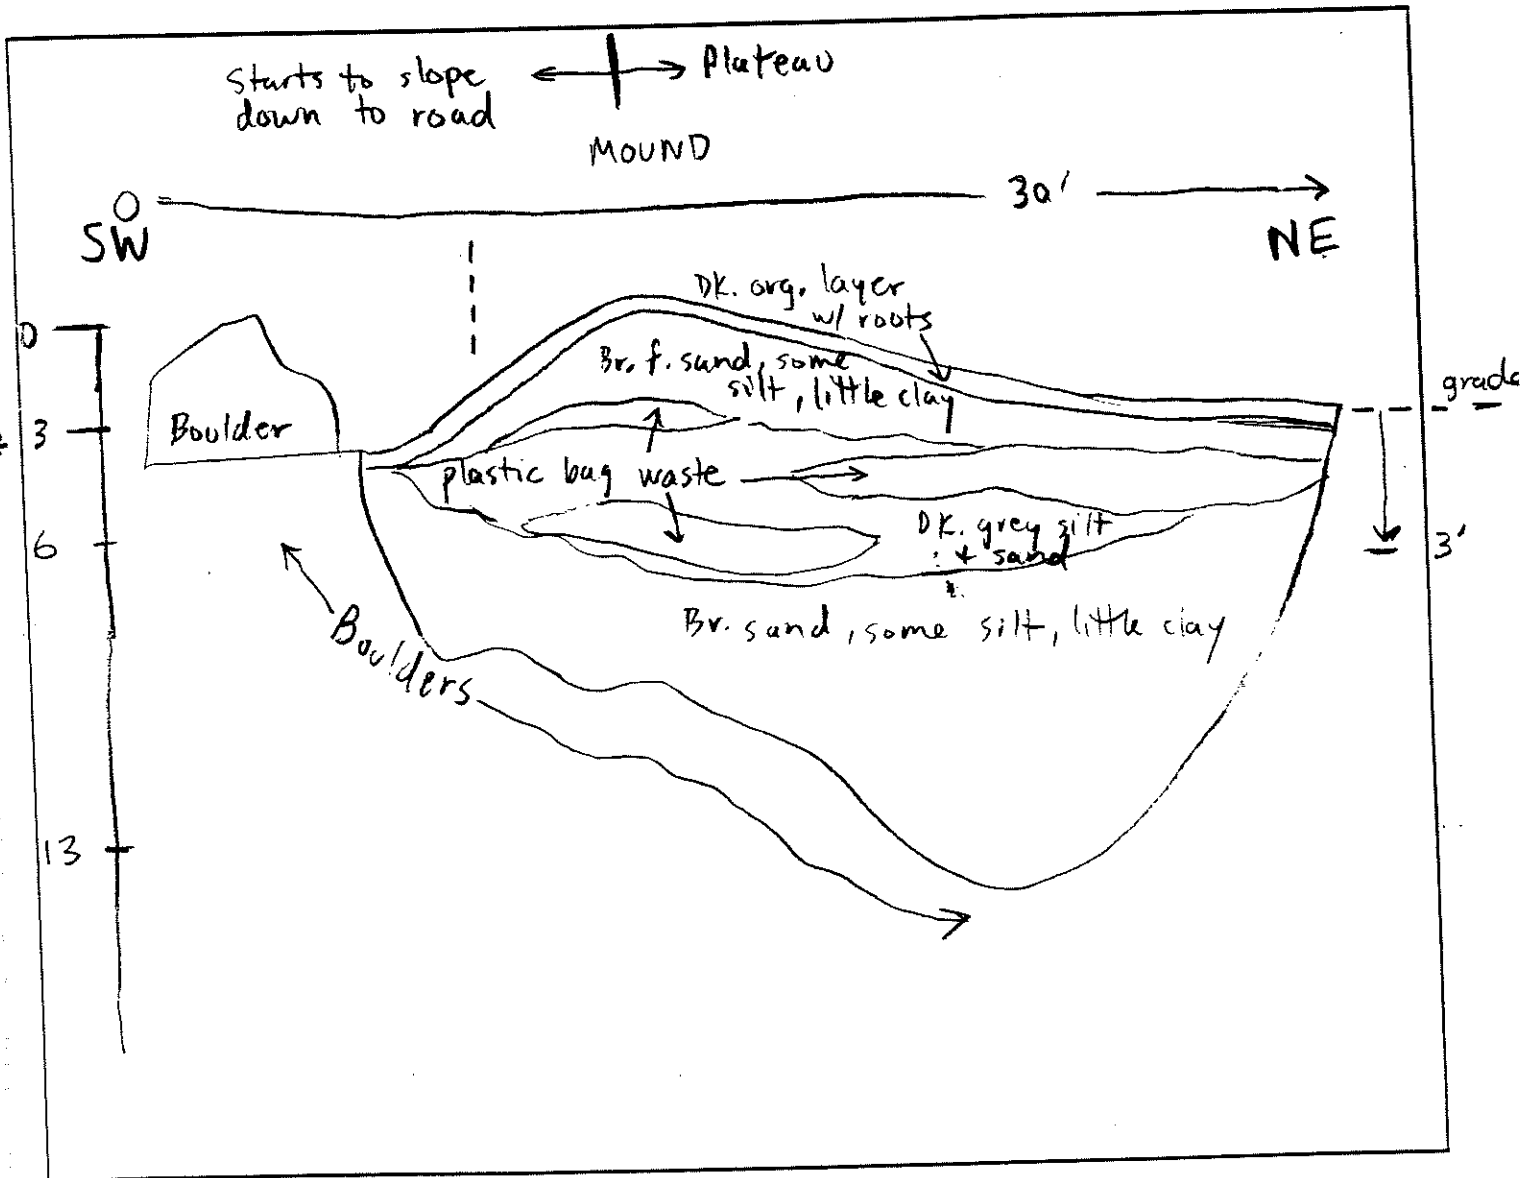 Starts to slope
down to road
Plateau
MOUND
0
30'
SW
NE
DK. org. layer
w/ roots
0
Br. f. sand, some
silt, little clay
grade
Boulder
3
plastic bag waste
DK. grey silt
+ sand
6
3'
Boulders
Br. sand, some silt, little clay
13